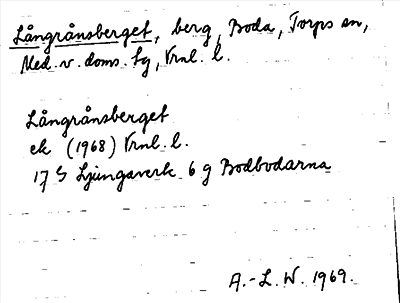 Långrånsberget, berg, Boda, Torps sn,
Med. v. doms. tg, Vrnl. l.
Långrånsberget
ek (1968) Vrnl. l.
17 G Ljungaverk 6 g Bodbodarna
A.-L. W. 1969.